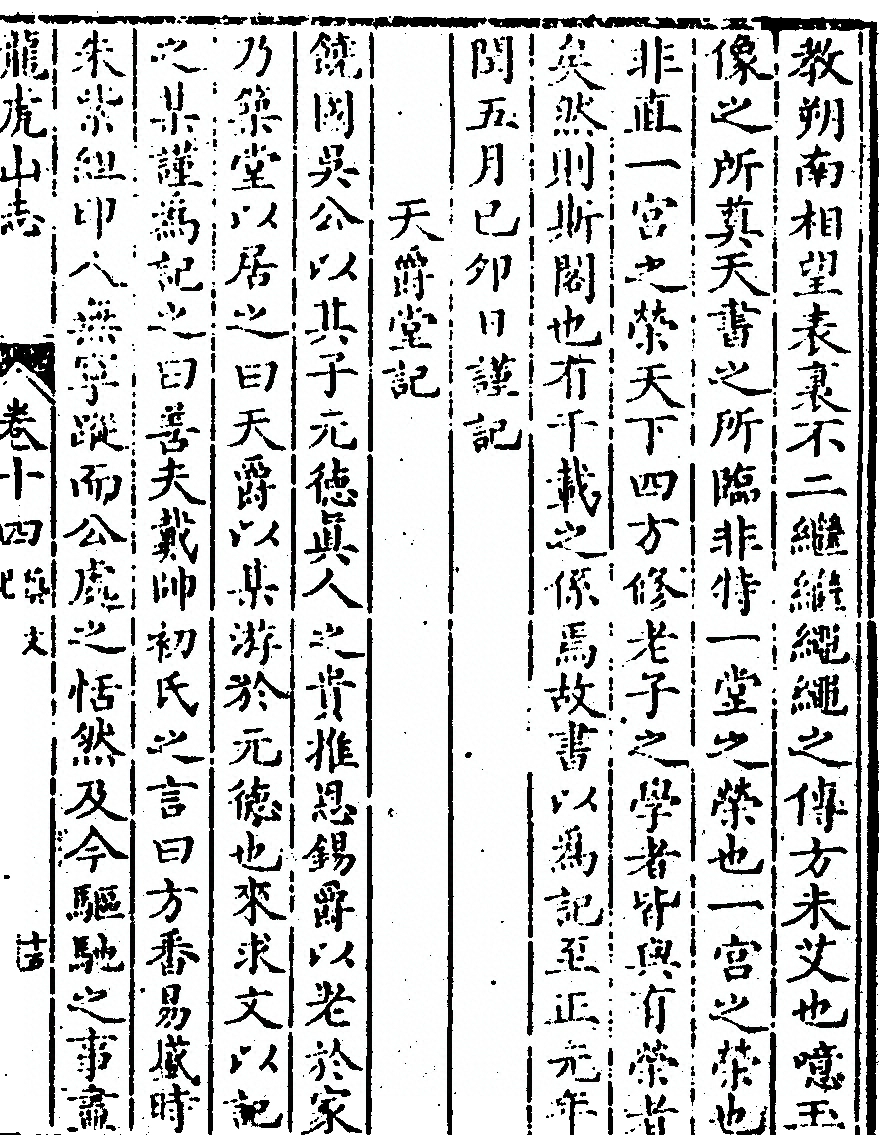 教朔南相望表裏不二繼繼繩繩之傳方未艾也噫玉
像之所奠天書之所臨非特一堂之榮也一宮之榮也
非直一宮之榮天下四方修老子之學者皆與有榮者
矣然則斯閣也有千載之係焉故書以爲記至正元年
閏五月已卯日謹記
天爵堂記
饒國吳公以其子元德眞人之貴推恩錫爵以老於家
乃築堂以居之曰天爵以某游於元德也來求文以記
之某謹爲記之曰善夫戴帥初氏之言曰方番易盛時
朱紫組印人無寧蹤而公處之恬然及今驅馳之事盡
龍虎山志
卷十四
文